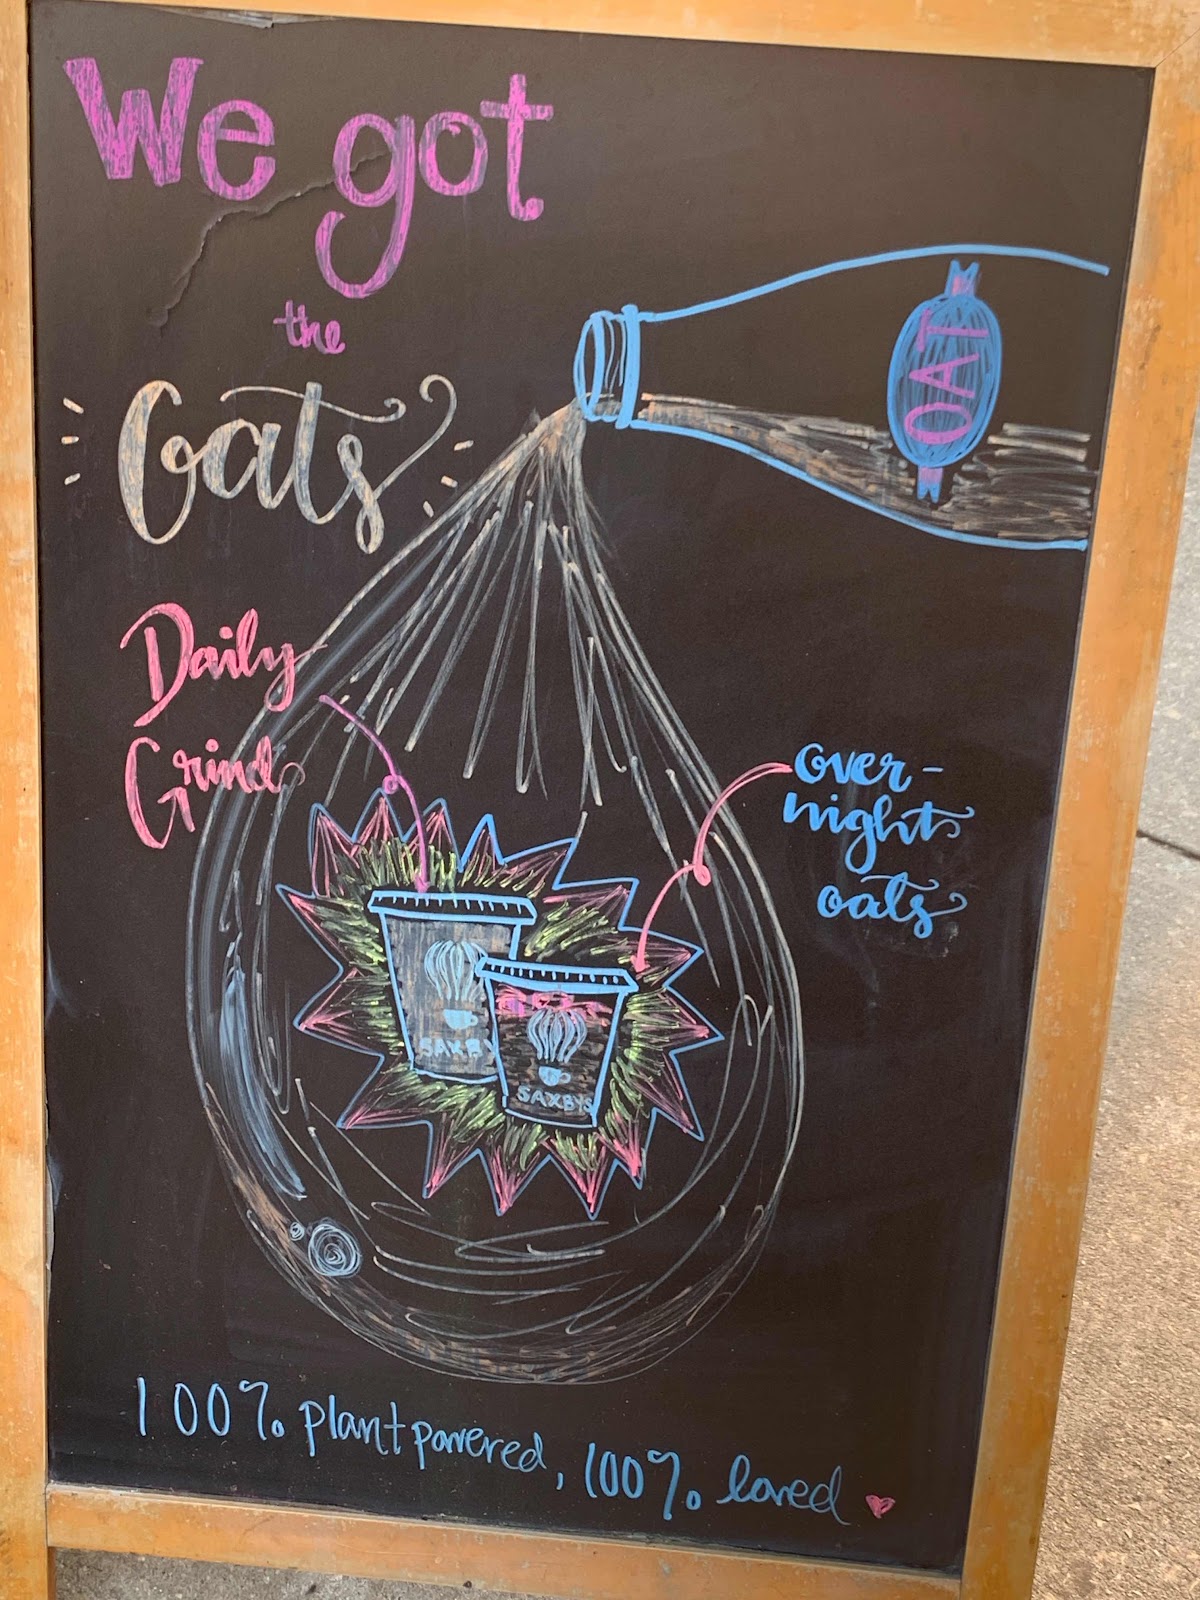 We got
the
Oats
OAT
Daily
Grind
over-
night
oats
SAXBYS
SAXBYS
100% plant powered, 100% loved